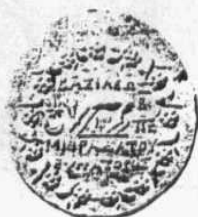 ΒΑΣΙΛΕΩΣ
ΜΙΘΡΑΔΑΤΟΥ
ΕΥΠΑΤΟΡΟΣ